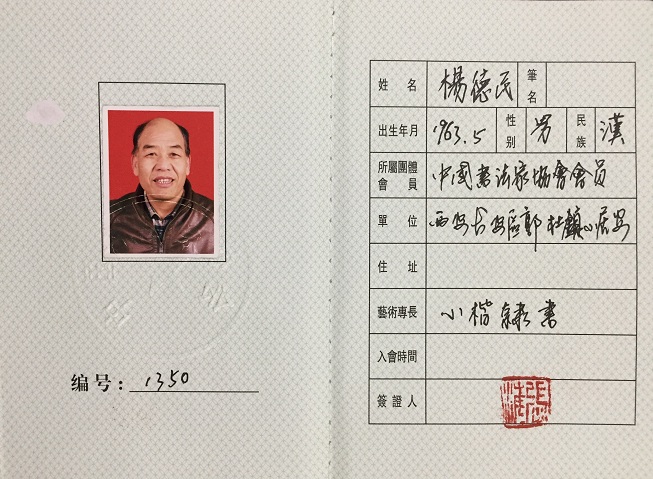 编号: 1350
姓名 楊德民 筆名
出生年月 1963.5 性别 男 民族 漢
所屬團體會員 中國書法家協會會員
單位 西安长安區郭杜鎮小居安
住址
藝術專長 小楷隸書
入會時間
簽證人